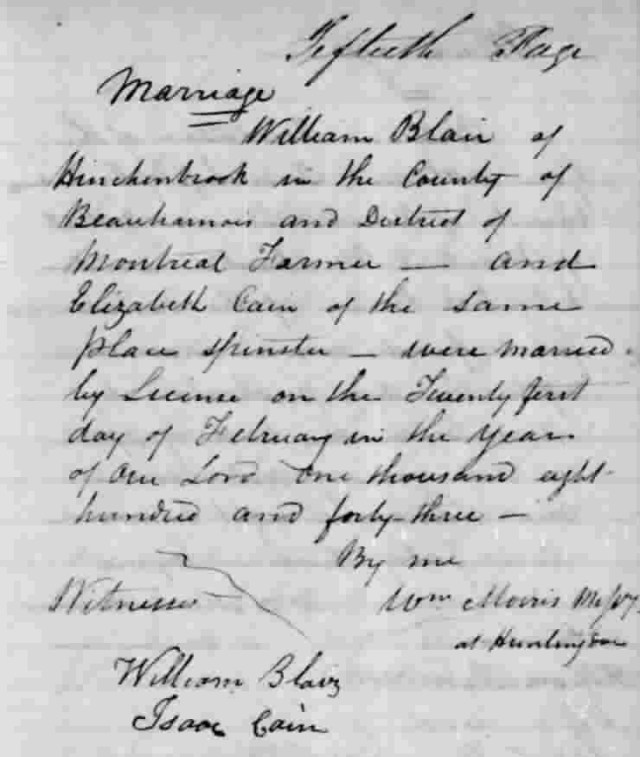 Fiftieth Page
Marriage
William Blair of
Hinchenbrook in the County of
Beauharnois and District of
Montreal Farmer — and
Elizabeth Cain of the same
place spinster — were married
by Licence on the Twenty first
day of February in the Year
of Our Lord One thousand eight
hundred and forty-three —
By me
Witnesses
Wm Morris
at Huntingdon
William Blair
Isaac Cain